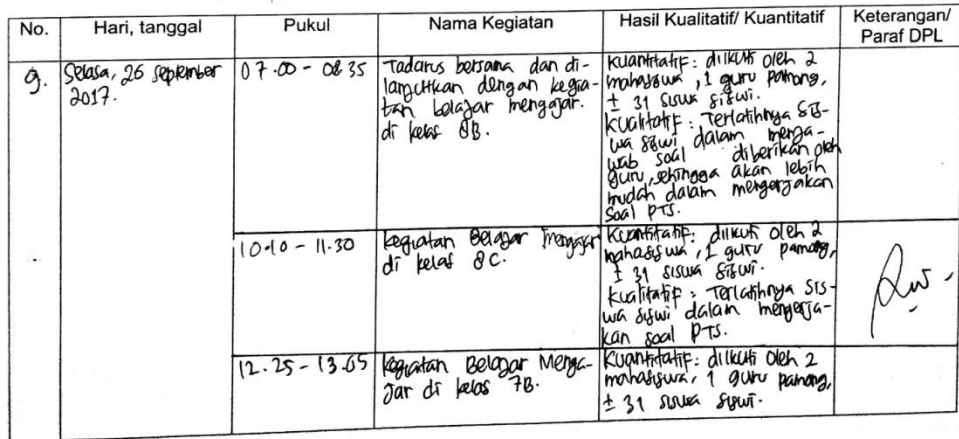 No.
Hari, tanggal
Pukul
Nama Kegiatan
Hasil Kualitatif/ Kuantitatif
Keterangan/
Paraf DPL
9.
Selasa, 26 september
2017.
07.00 - 08.35
Tadarus bersama dan di-
lanjutkan dengan kegia-
tan belajar mengajar.
di kelas 8B.
Kuantitatif: diikuti oleh 2
mahasiswa, 1 guru pamong,
± 31 siswa siswi.
Kualitatif: Terlatihnya sis-
wa siswi dalam menja-
wab soal diberikan oleh
guru, sehingga akan lebih
mudah dalam mengerjakan
soal PTS.
10.10 - 11.30
kegiatan Belajar mengajar
di kelas 8C.
Kuantitatif: diikuti oleh 2
mahasiswa, 1 guru pamong,
± 31 siswa siswi.
kualitatif: Terlatihnya sis-
wa siswi dalam mengerja-
kan soal PTS.
12.25 - 13.05
kegiatan Belajar Menga-
jar di kelas 7B.
Kuantitatif: diikuti oleh 2
mahasiswa, 1 guru pamong,
± 31 siswa siswi.